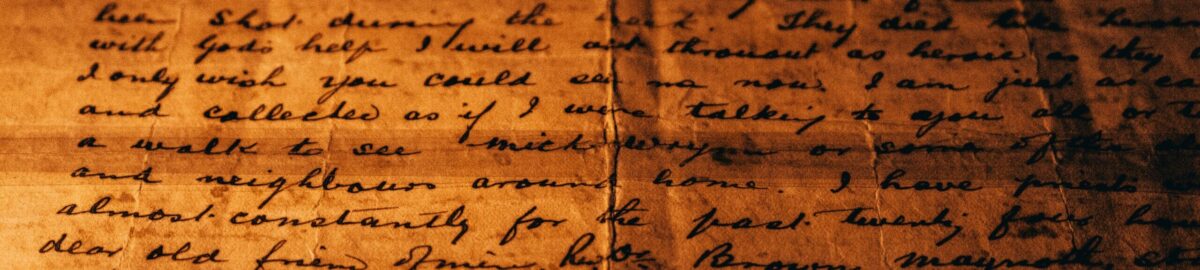 been Shot during the week. They died like heroes
with God's help I will act througout as heroic as they
I only wish you could see me now. I am just as
and collected as if I were talking to you all or
a walk to see Mick Wryne or some of the
and neighbours around home. I have priests
almost constantly for the past twenty four
dear old friend of mine Brown, maynooth